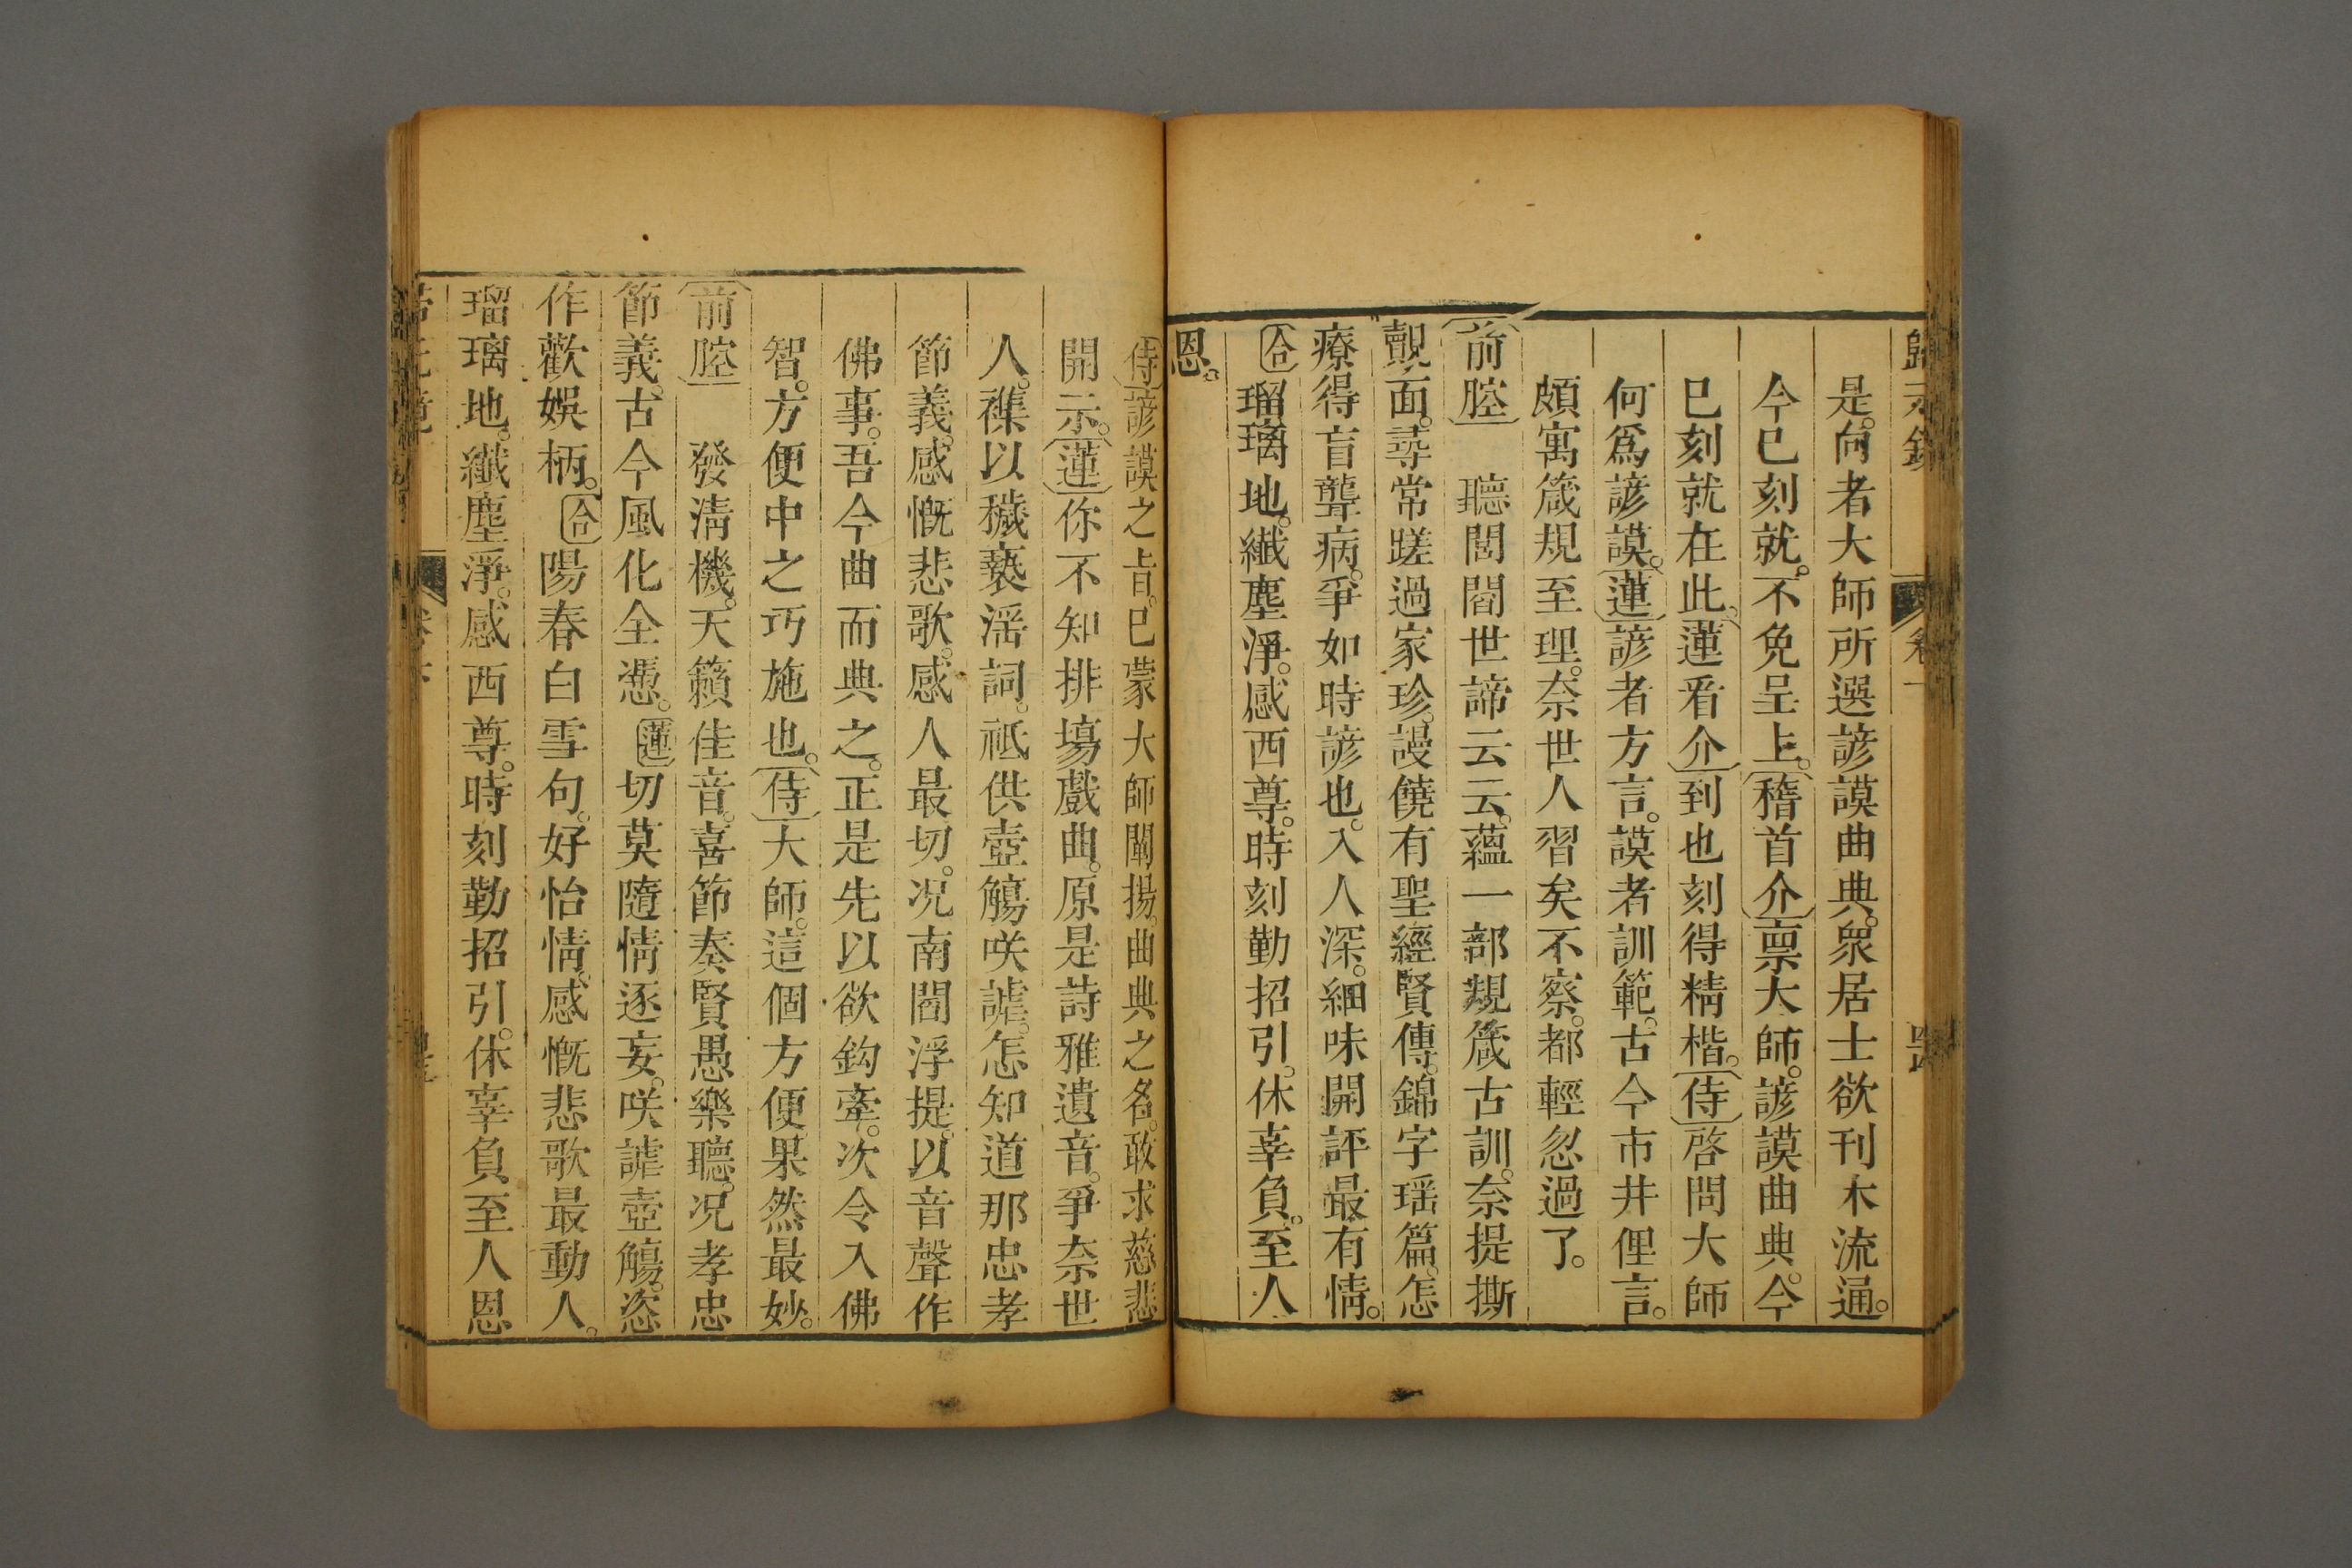 歸元鏡
卷
是。向者大師所選諺謨曲典。衆居士欲刊木流通。
今已刻就。不免呈上。稽首介稟大師。諺謨曲典。今
已刻就在此。蓮看介到也刻得精楷。侍啓問大師
何爲諺謨。蓮諺者方言。謨者訓範。古今市井俚言。
頗寓箴規至理。奈世人習矣不察。都輕忽過了。
前腔 聽閭閻世諦云云。蘊一部規箴古訓。奈提撕
覿面。尋常蹉過家珍。謾饒有聖經賢傳。錦字瑶篇。怎
療得盲聾病。爭如時諺也。入人深。細味開評最有情。
合瑠璃地。纎塵淨。感西尊。時刻勤招引。休辜負。至人
恩。
侍諺謨之旨。已蒙大師闡揚。曲典之名。敢求慈悲
開示。蓮你不知排場戲曲。原是詩雅遺音。爭奈世
人。襍以穢褻滛詞。祗供壺觴咲謔。怎知道那忠孝
節義。感慨悲歌。感人最切。况南閻浮提。以音聲作
佛事。吾今曲而典之。正是先以欲鈎牽。次令入佛
智。方便中之巧施也。侍大師。這個方便果然最妙。
前腔 發淸機。天籟佳音。喜節奏賢愚樂聽。况孝忠
節義。古今風化全憑。蓮切莫隨情逐妄。咲謔壺觴。恣
作歡娛柄。合陽春白雪句。好怡情。感慨悲歌最動人。
瑠璃地。纎塵淨。感西尊。時刻勤招引。休辜負至人恩